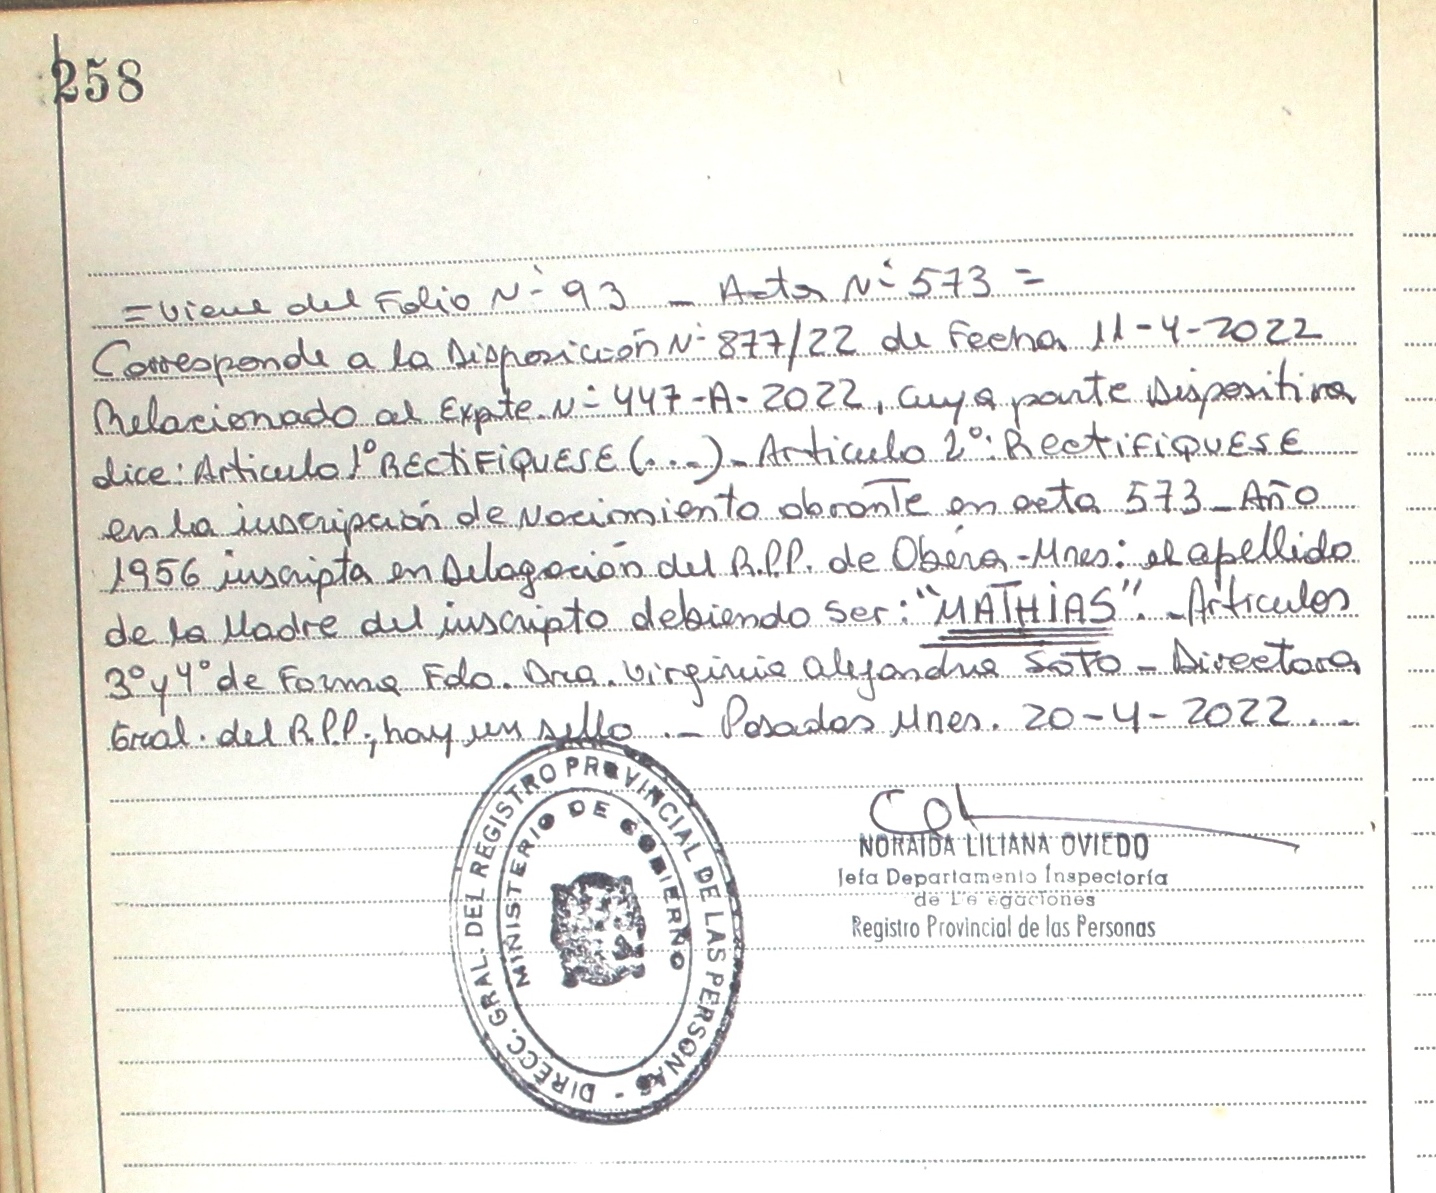 258
= Viene del Folio Nº 93 - Acta Nº 573 =
Corresponde a la Disposición Nº 877/22 de Fecha 11-4-2022
Relacionado al Expte. Nº 447-A-2022, cuya parte Dispositiva
dice: Articulo 1º RECTIFIQUESE (...) - Articulo 2º: RECTIFIQUESE
en la inscripción de Nacimiento obrante en acta 573 - Año
1956 inscripta en Delegación del R.P.P. de Oberá - Mnes: el apellido
de la Madre del inscripto debiendo ser: "MATHIAS". - Articulos
3º y 4º de Forma Fdo. Dra. Virginia Alejandra SOTO - Directora
Gral. del R.P.P.; hay un sello. - Posadas Mnes. 20-4-2022. -
DIRECC. GRAL. DEL REGISTRO PROVINCIAL DE LAS PERSONAS -
MINISTERIO DE GOBIERNO
NORAIDA LILIANA OVIEDO
Jefa Departamento Inspectoría
de Delegaciones
Registro Provincial de las Personas